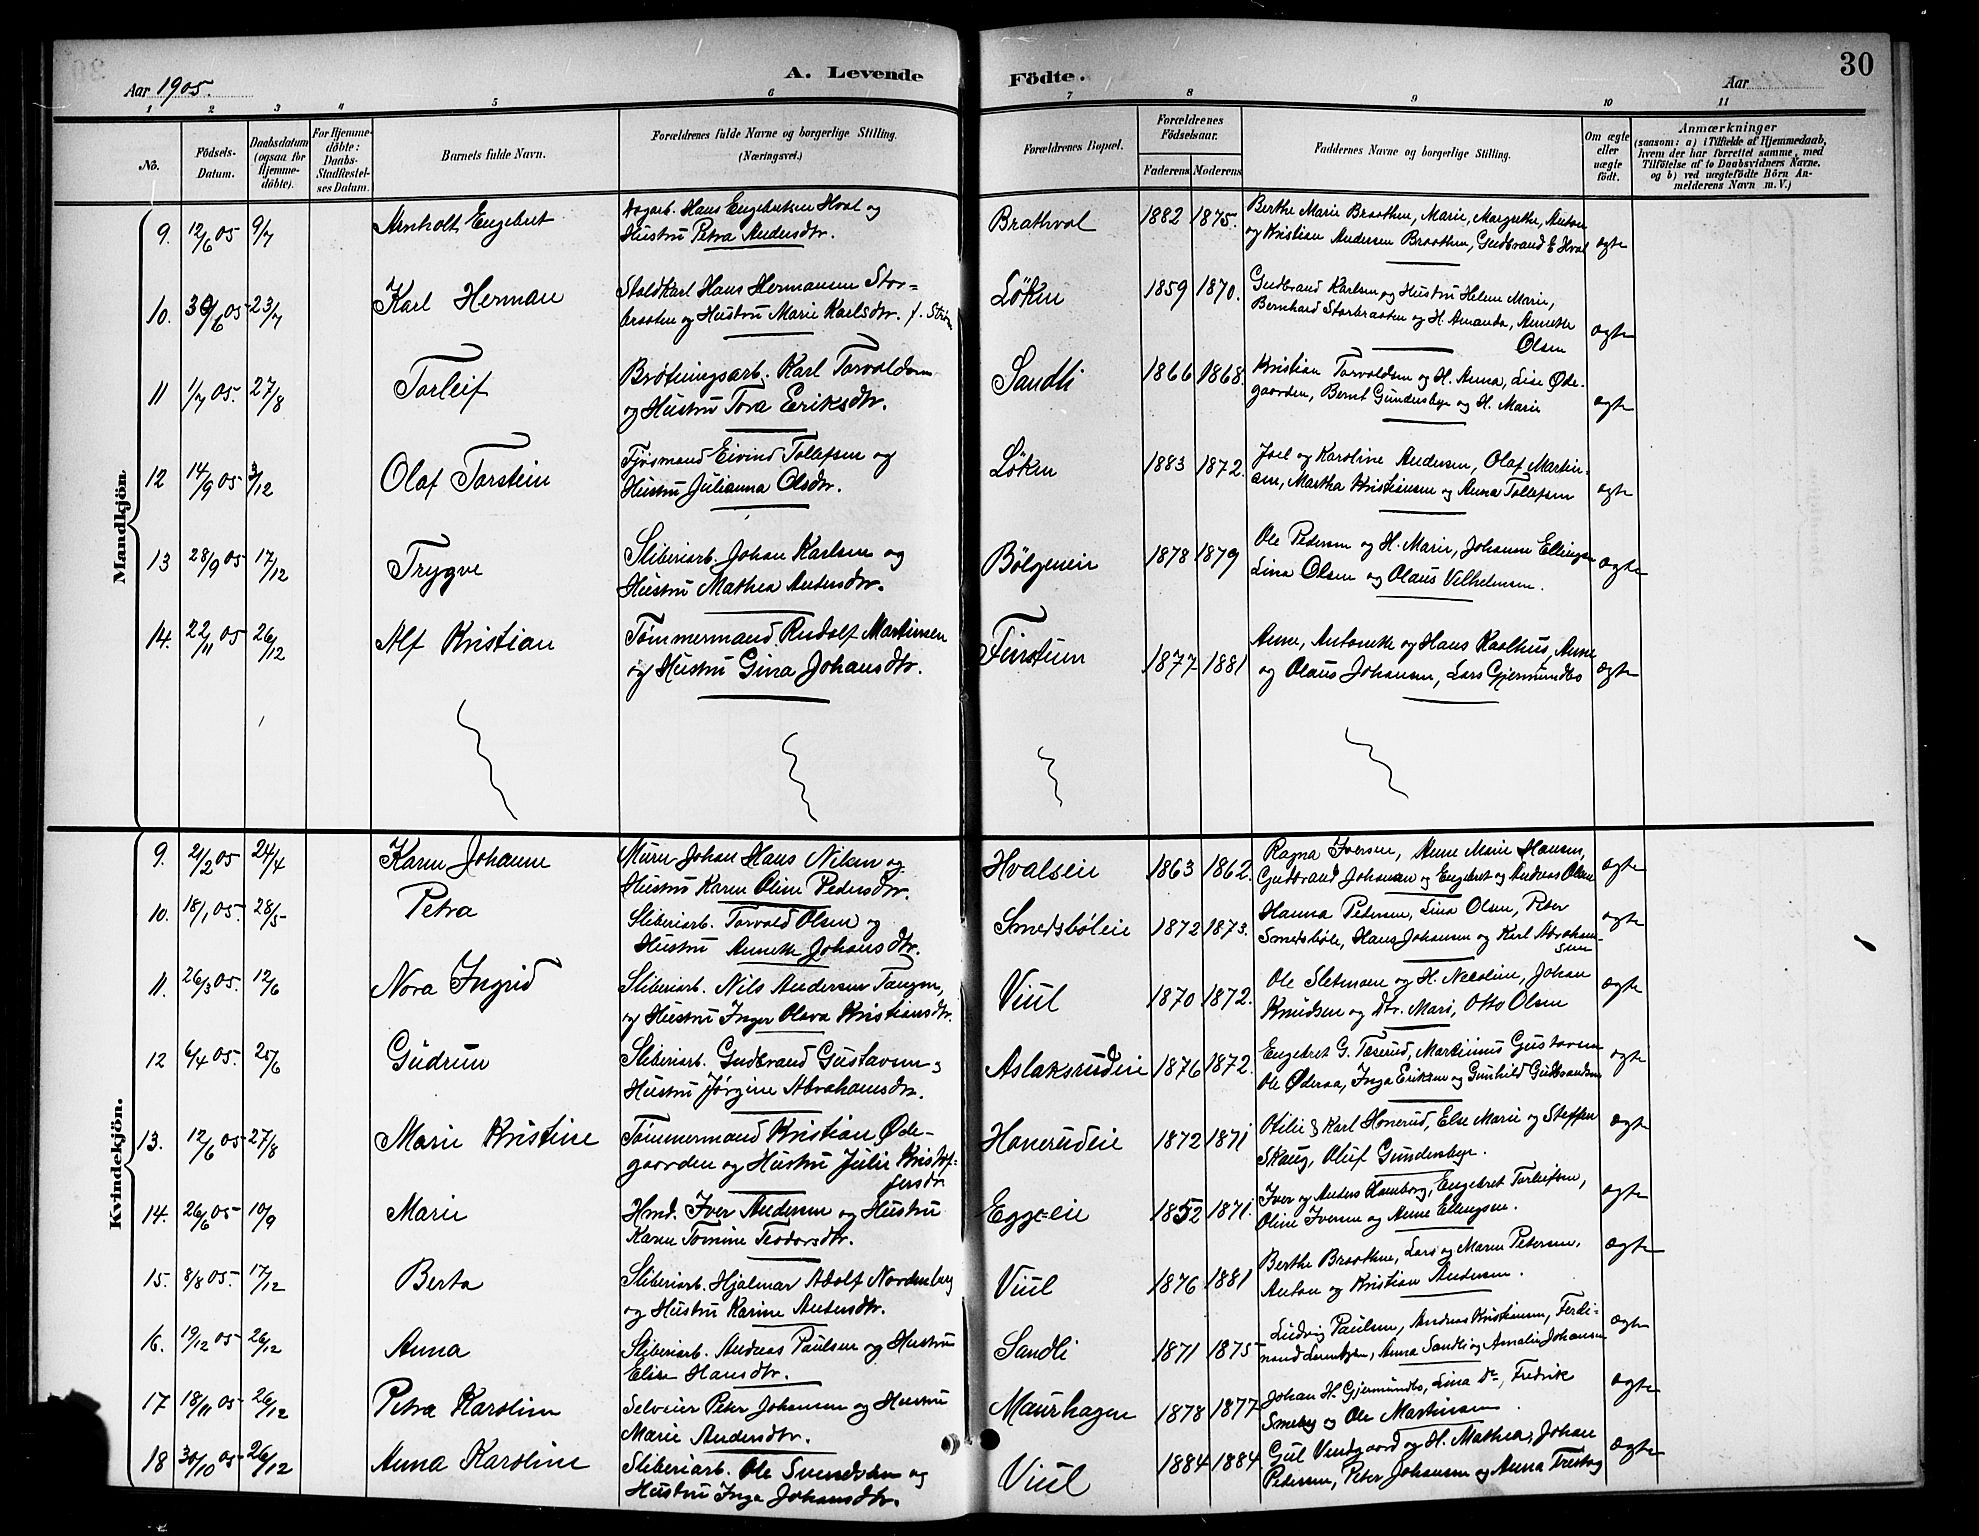 Aar 1905.
A. Levende
Födte.
Aar
30
1 2 3 4 5 6 7 8 9 10 11
No.
Födsels-
Datum.
Daabsdatum
(ogsaa for
Hjemme-
döbte).
For Hjemme-
döbte:
Daabs-
Stadfæstel-
ses Datum.
Barnets fulde Navn.
Forældrenes fulde Navne og borgerlige Stilling.
(Næringsvei.)
Forældrenes Bopæl.
Forældrenes
Födselsaar.
Faderens Moderens
Faddernes Navne og borgerlige Stilling.
Om ægte
eller
uægte
født.
Anmærkninger
(saasom: a) i Tilfælde af Hjemmedaab,
hvem der har forrettet samme, med
Tilföielse af to Daabsvidners Navne,
og b) ved uægtefödte Börn An-
melderens Navn m. V.)
Mandkjön.
9. 12/6 05 9/7
Arnholt Engebret
Dagarb. Hans Engebretsen Hval og
Hustru Petra Andersdtr.
Brathval
1882 1875.
Berthe Marie Braathen, Marie, Margrethe, Anton
og Kristian Andersen Braathen, Gudbrand E. Hval
ægte
10. 30/6 05 23/7
Karl Herman
Staldkarl Hans Hermansen Stor-
braaten og Hustru Marie Karlsdtr. f. Strøm
Løken
1859 1870.
Gudbrand Karlsen og Hustru Helene Marie,
Bernhard Storbraaten og H. Amanda, Annette
Olsen
ægte
11 1/7 05. 27/8
Torleif
Brötningsarb. Karl Torvaldsen
og Hustru Tora Eriksdtr.
Sandli
1866 1868.
Kristian Torvaldsen og H. Anna, Lise Øde-
gaarden, Bernt Gundersbye og H. Marie
ægte
12 14/9 05 3/12
Olaf Torstein
Fjösmand Eivind Tollefsen og
Hustru Julianna Olsdtr.
Løken
1883 1872.
Joel og Karoline Andersen, Olaf Martin-
sen, Martha Kristiansen og Anna Tollefsen
ægte
13 28/9 05 17/12
Trygve
Sliberiarb. Johan Karlsen og
Hustru Mathea Andersdtr.
Bölgeneie
1878 1879
Ole Pedersen og H. Marie, Johanne Ellingsen
Lina Olsen og Olaus Vilhelmsen.
ægte
14. 22/11 05 26/12
Alf Kristian
Tømmermand Rudolf Martinsen
og Hustru Gina Johansdtr.
Finstum
1877 1881
Anne, Antonette og Hans Kaalhus, Anne
og Olaus Johansen, Lars Gjermundbo
ægte
Kvindekjön.
9. 21/2 05 24/4
Karen Johanne
Murer Johan Hans Nilsen og
Hustru Karen Oline Pedersdtr.
Hvalseie
1863 1862.
Ragna Iversen, Anne Marie Hansen,
Gudbrand Johansen og Engebret og Andreas Olsen
ægte
10. 18/1 05. 28/5
Petra
Sliberiarb. Torvald Olsen og
Hustru Annette Johansdtr.
Smedsböleie
1872 1873.
Hanna Petersen, Lina Olsen, Peter
Smedsböle, Hans Johansen og Karl Abraham-
sen
ægte
11. 26/3 05. 12/6
Nora Ingrid
Sliberiarb. Nils Andersen Tangen,
og Hustru Inger Olava Kristiansdtr.
Viul
1870 1872.
Ole Sletmoen og H. Nicoline, Johan
Knudsen og dtr. Mari, Otto Olsen
ægte
12 6/4 05. 25/6
Gudrun
Sliberiarb. Gudbrand Gustavsen og
Hustru Jørgine Abrahamsdtr.
Aslaksrudeie
1876 1872.
Engebret G. Tæserud, Martinius Gustavsen
Ole Øderaa, Inga Eriksen og Gunhild Gudbrandsen
ægte
13. 12/6 05 27/8
Marie Kristine
Tømmermand Kristian Øde-
gaarden og Hustru Julie Kristof-
fersdtr
Honerudeie
1872 1871
Otilie & Karl Honerud, Else Marie og Steffen
Skaug, Oluf Gundersbye.
ægte
14. 26/6 05 10/9
Marie
Hmd. Iver Andersen og Hustru
Karen Tomine Teodorsdtr.
Eggeeie
1852 1871.
Iver og Anders Ramborg, Engebret Torleifsen,
Oline Iversen og Anne Ellingsen.
ægte
15. 8/8 05. 17/12
Berta
Sliberiarb. Hjalmar Adolf Nordenberg
og Hustru Karine Andersdtr.
Viul
1876 1881
Berthe Braathen, Lars og Maren Petersen,
Anton og Kristian Andersen.
ægte
16. 19/12 05 26/12
Anna
Sliberiarb. Andreas Paulsen og Hustru
Elise Hansdtr.
Sandli
1871 1875
Ludvig Paulsen, Andreas Kristiansen, Ferdi-
nand, Anna Sandli og Amalie Johansen
ægte
17 18/11 05 26/12
Petra Karoline
Selveier Peter Johansen og Hustru
Marie Andersdtr.
Maurhagen
1878 1877
Johan H. Gjermundbo, Lina Do, Fredrik
Smeby og Ole Martinsen.
ægte
18 30/10 05 26/12
Anna Karoline
Sliberiarb. Ole Svendsen og
Hustru Inga Johansdtr.
Viul
1884 1884
Gul Vendgaard og H. Mathea, Johan
Pedersen, Peter Johansen og Anna
ægte